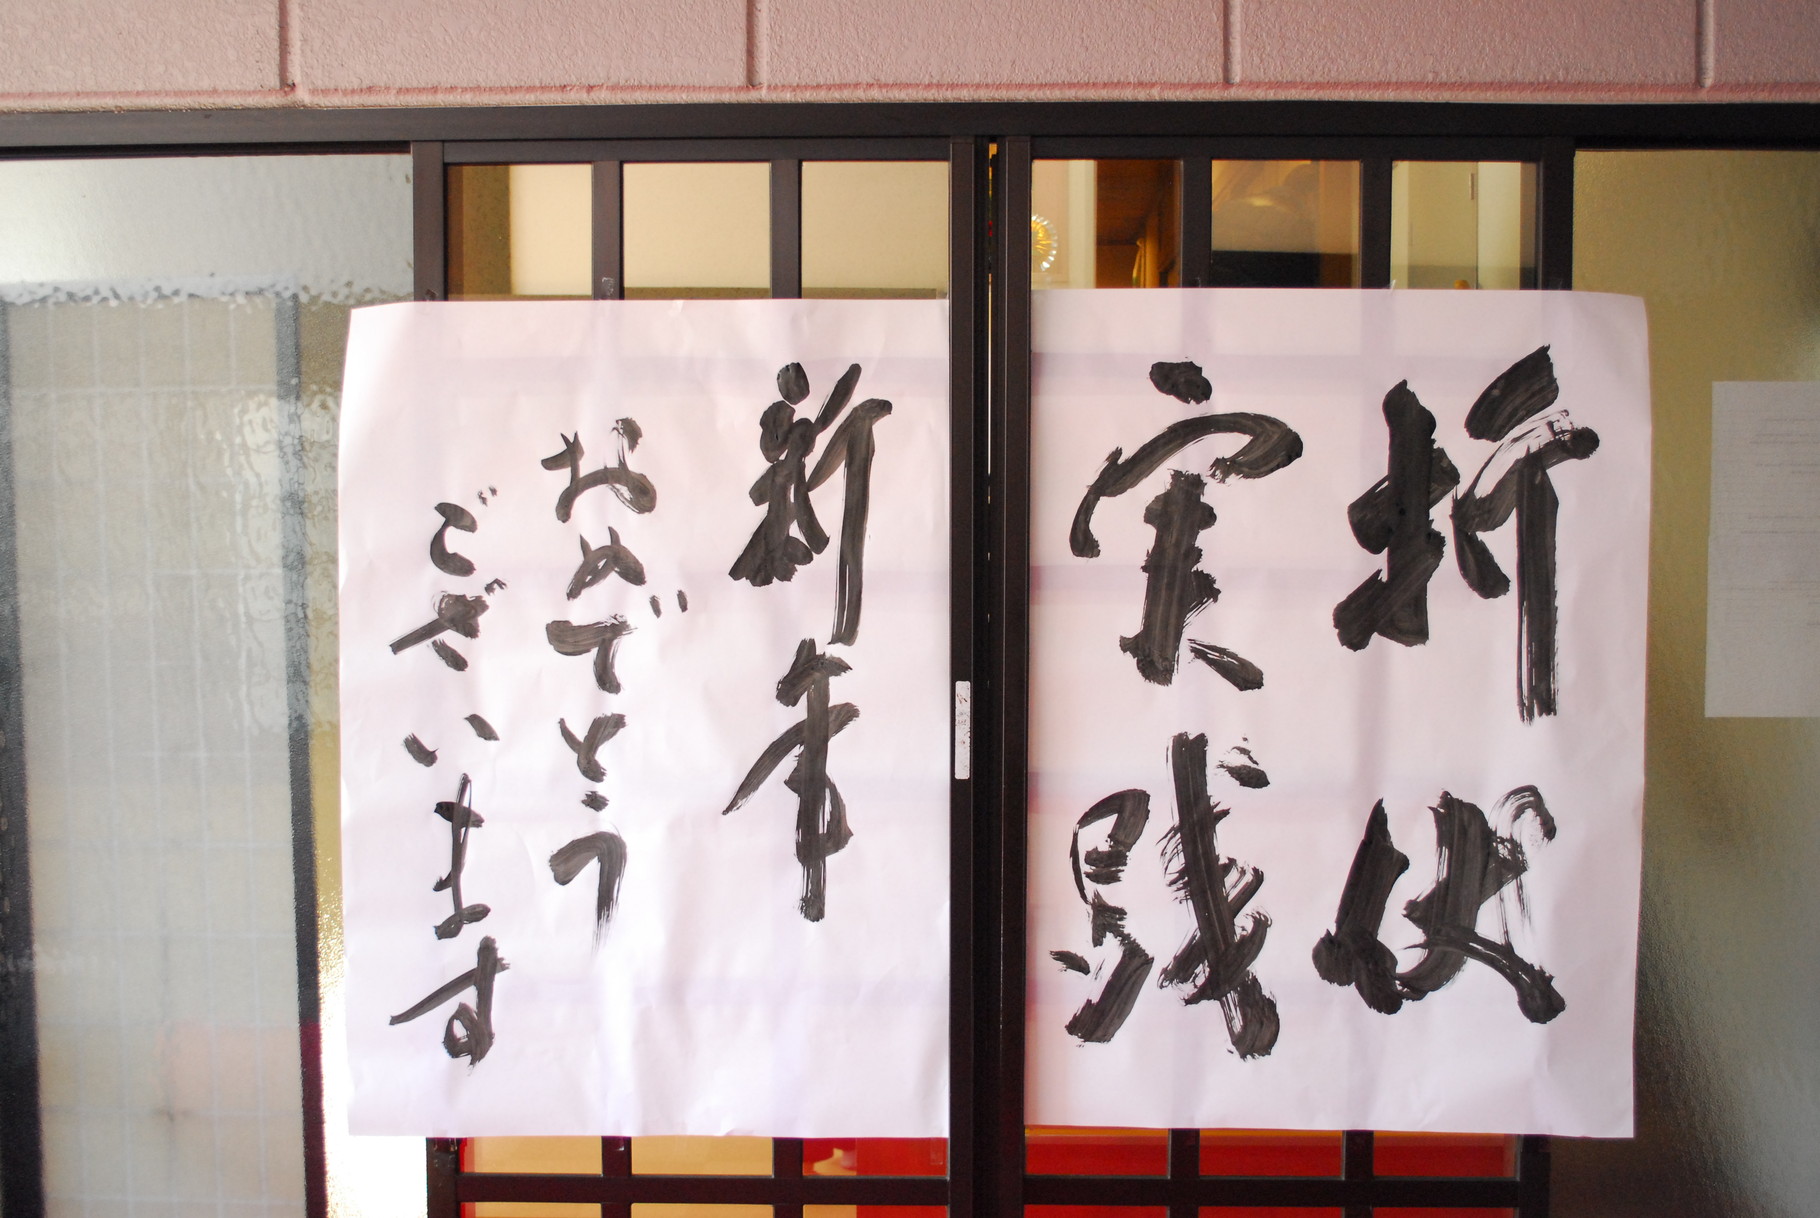 折伏
実践
新年
おめでとう
ございます